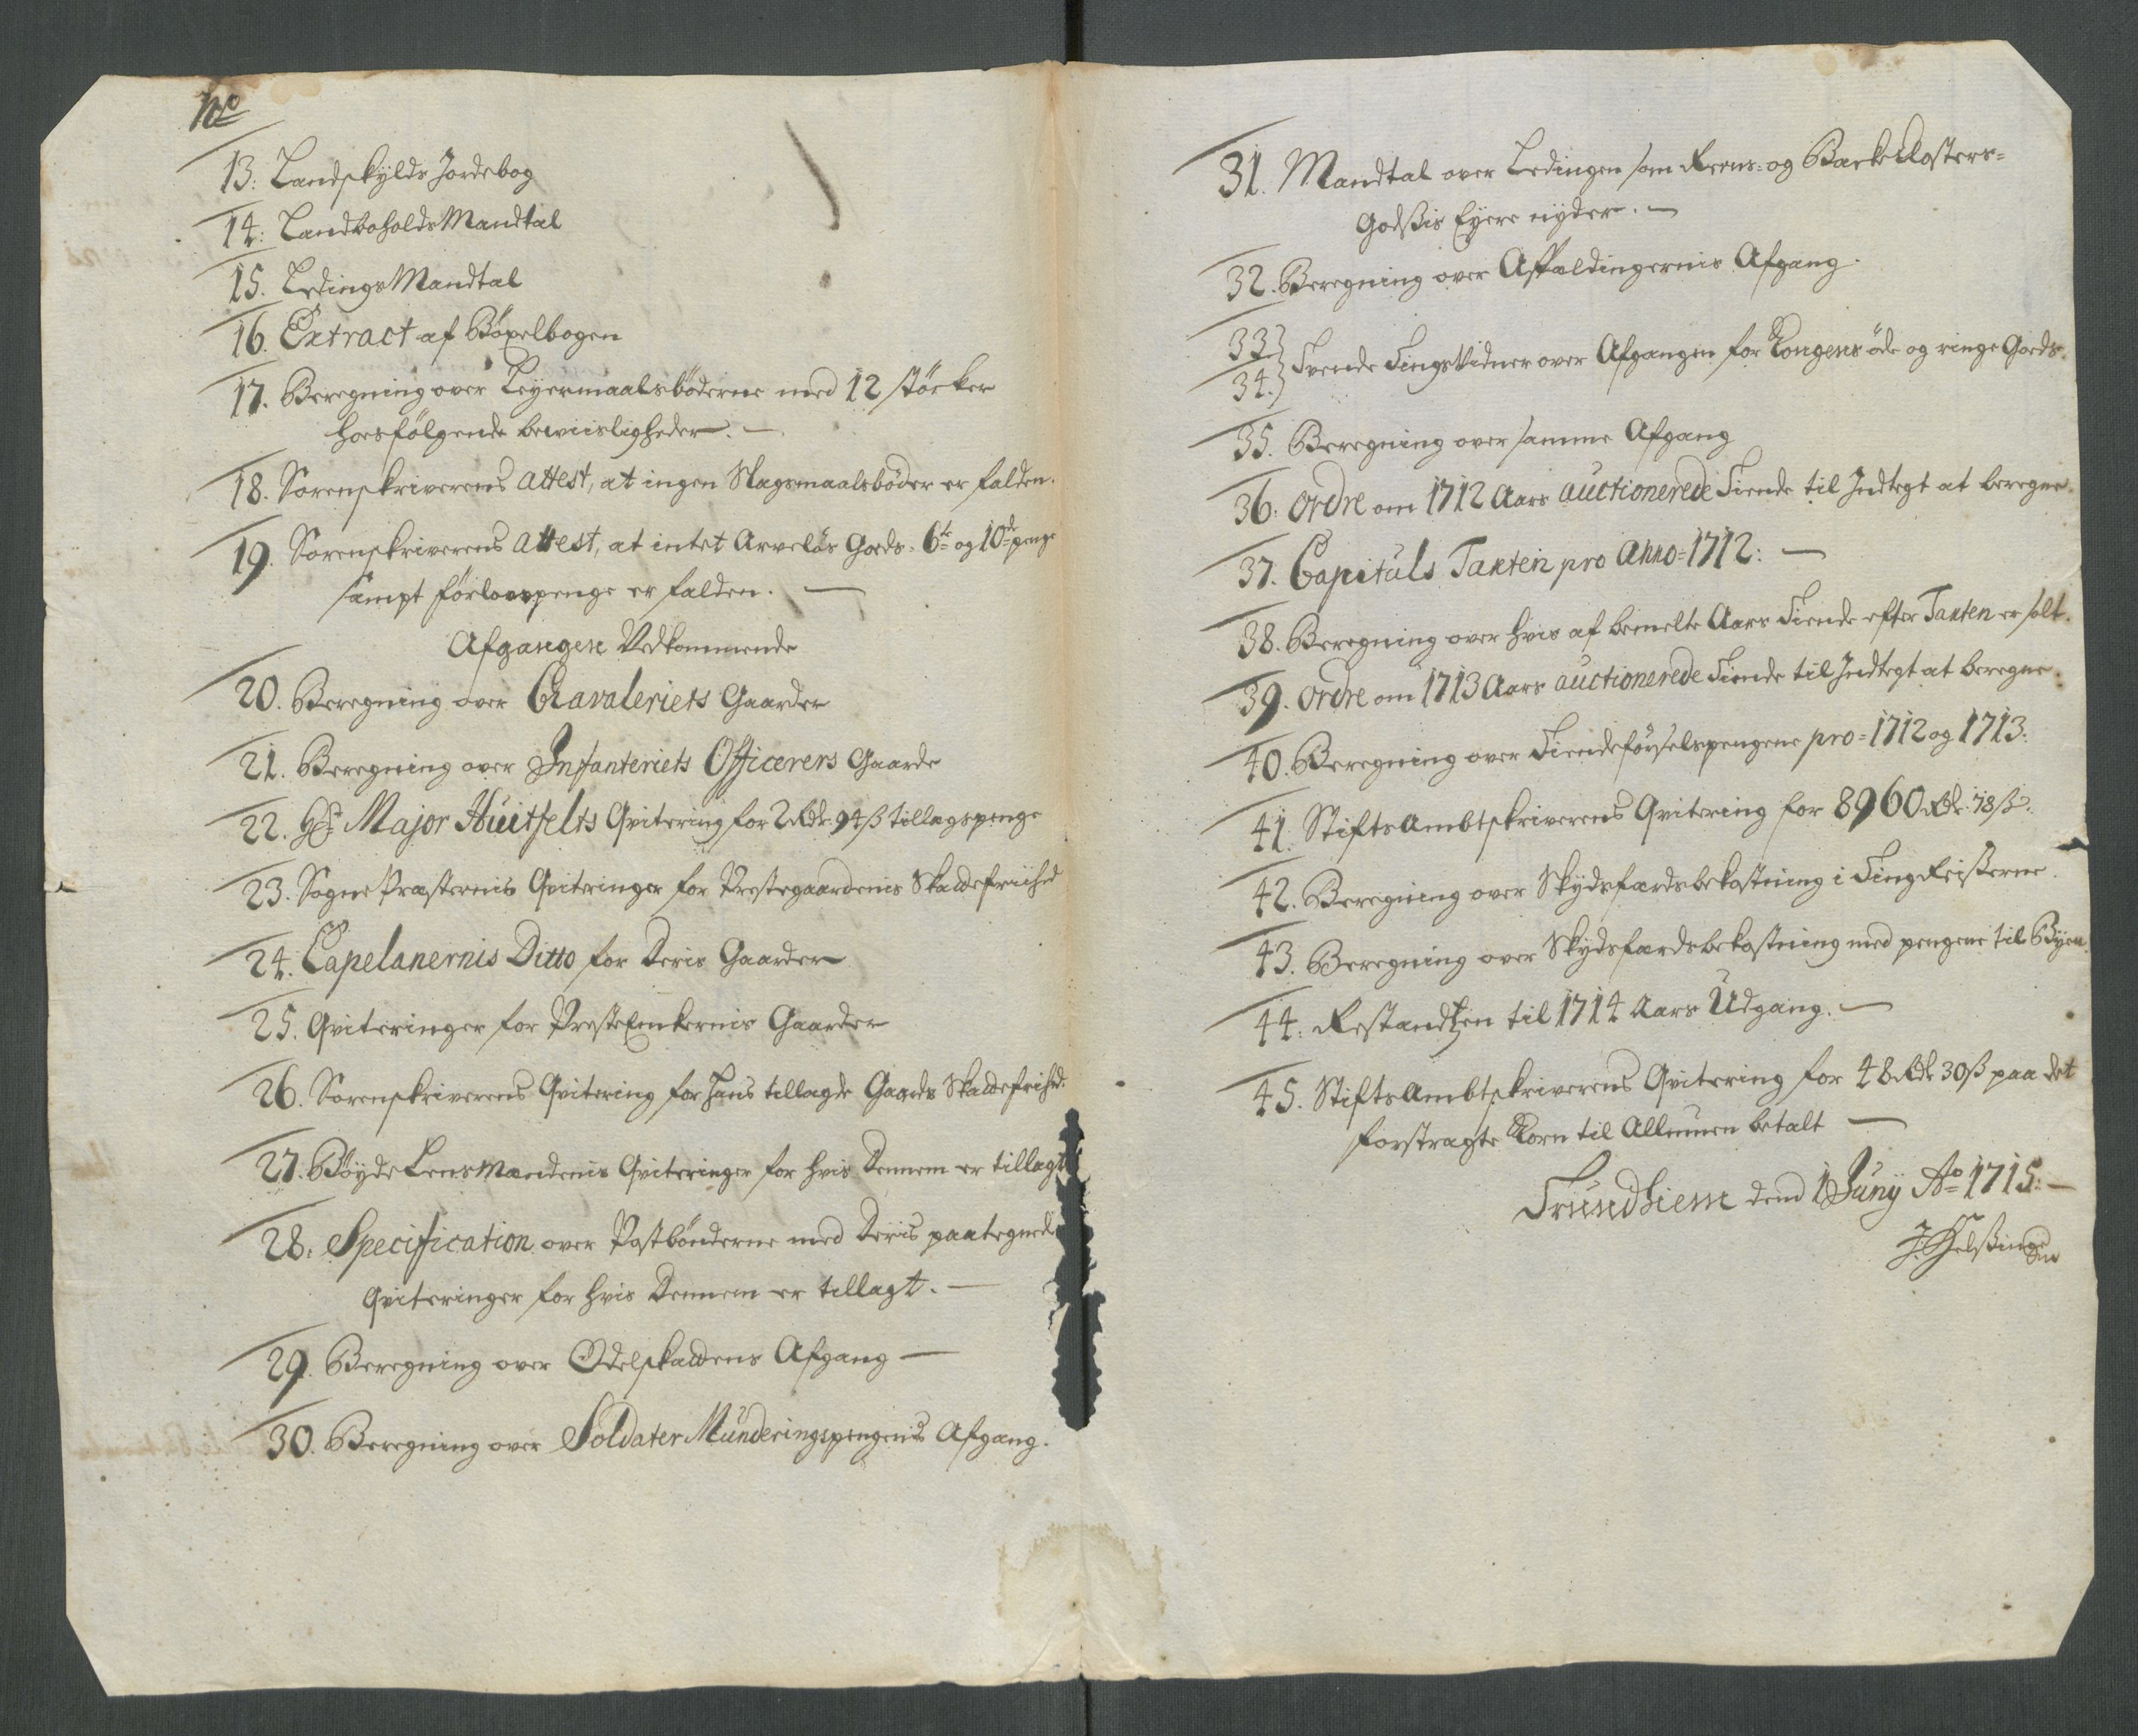 No
13. Landskylds Jordebog
14. Landboholds Mandtal
15. Ledings Mandtal
16. Extract af Böxelbogen
17. Beregning over Leyermaalsböderne med 12 stöcker
hoesfölgende beviisligheder. —
18. Sorenskriverens attest, at ingen Slagsmaalsböder er falden.
19. Sorenskriverens attest, at intet Arvelös Goeds, 6te og 10de penge
sampt förlovspenge er falden. —
Afgangen Vedkommende
20. Beregning over Cavaleriets Gaarder
21. Beregning over Infanteriets Officerers Gaarde
22. Hr Major Huitfelts Qvitering for 2 Rdr. 94 ß tillagspenge
23. Sogne Præsternis Qviteringer for Prestegaardenis Skattefriihed
24. Capelanernis Ditto for Deris Gaarder
25. Qviteringer for PresteEnkernis Gaarder
26. Sorenskriverens Qvitering for hans tillagde Gaards Skattefrihed.
27. Böyde Lensmændenis Qviteringer for hvis Dennem er tillagt
28. Specification over Postbönderne med Deris paategnede
Qviteringer for hvis Dennem er tillagt. —
29. Beregning over Odelskattens Afgang —
30. Beregning over Soldater Munderingspengenis Afgang.
31. Mandtal over Ledingen som Reens- og Backe Closters-
Godßis Eyere nyder. —
32. Beregning over Affældingernis Afgang.
33.
34. Tvende TingsVidner over Afgangen for Kongens öde og ringe Goeds.
35. Beregning over samme Afgang
36. Ordre om 1712 Aars auctionerede Tiende til Indtegt at beregne.
37. Capituls Taxten pro Anno 1712. —
38. Beregning over hvis af bemelte Aars Tiende efter Taxten er solt.
39. Ordre om 1713 Aars auctionerede Tiende til Indtegt at beregne.
40. Beregning over Tiendeförselspengene pro 1712 og 1713.
41. StiftsAmbtskriverens Qvitering for 8960 Rdr. 78 ß.
42. Beregning over Skydsfærdsbekostning i TingReißerne.
43. Beregning over Skydsfærdsbekostning med pengene til Byen.
44. Restandtzen til 1714 Aars Udgang. —
45. StiftsAmbtskriverens Qvitering for 48 Rdr. 30 ß paa det
forstragte Korn til Allmuen betalt —
Trundhiem dend 1 Juny Ao 1715. —